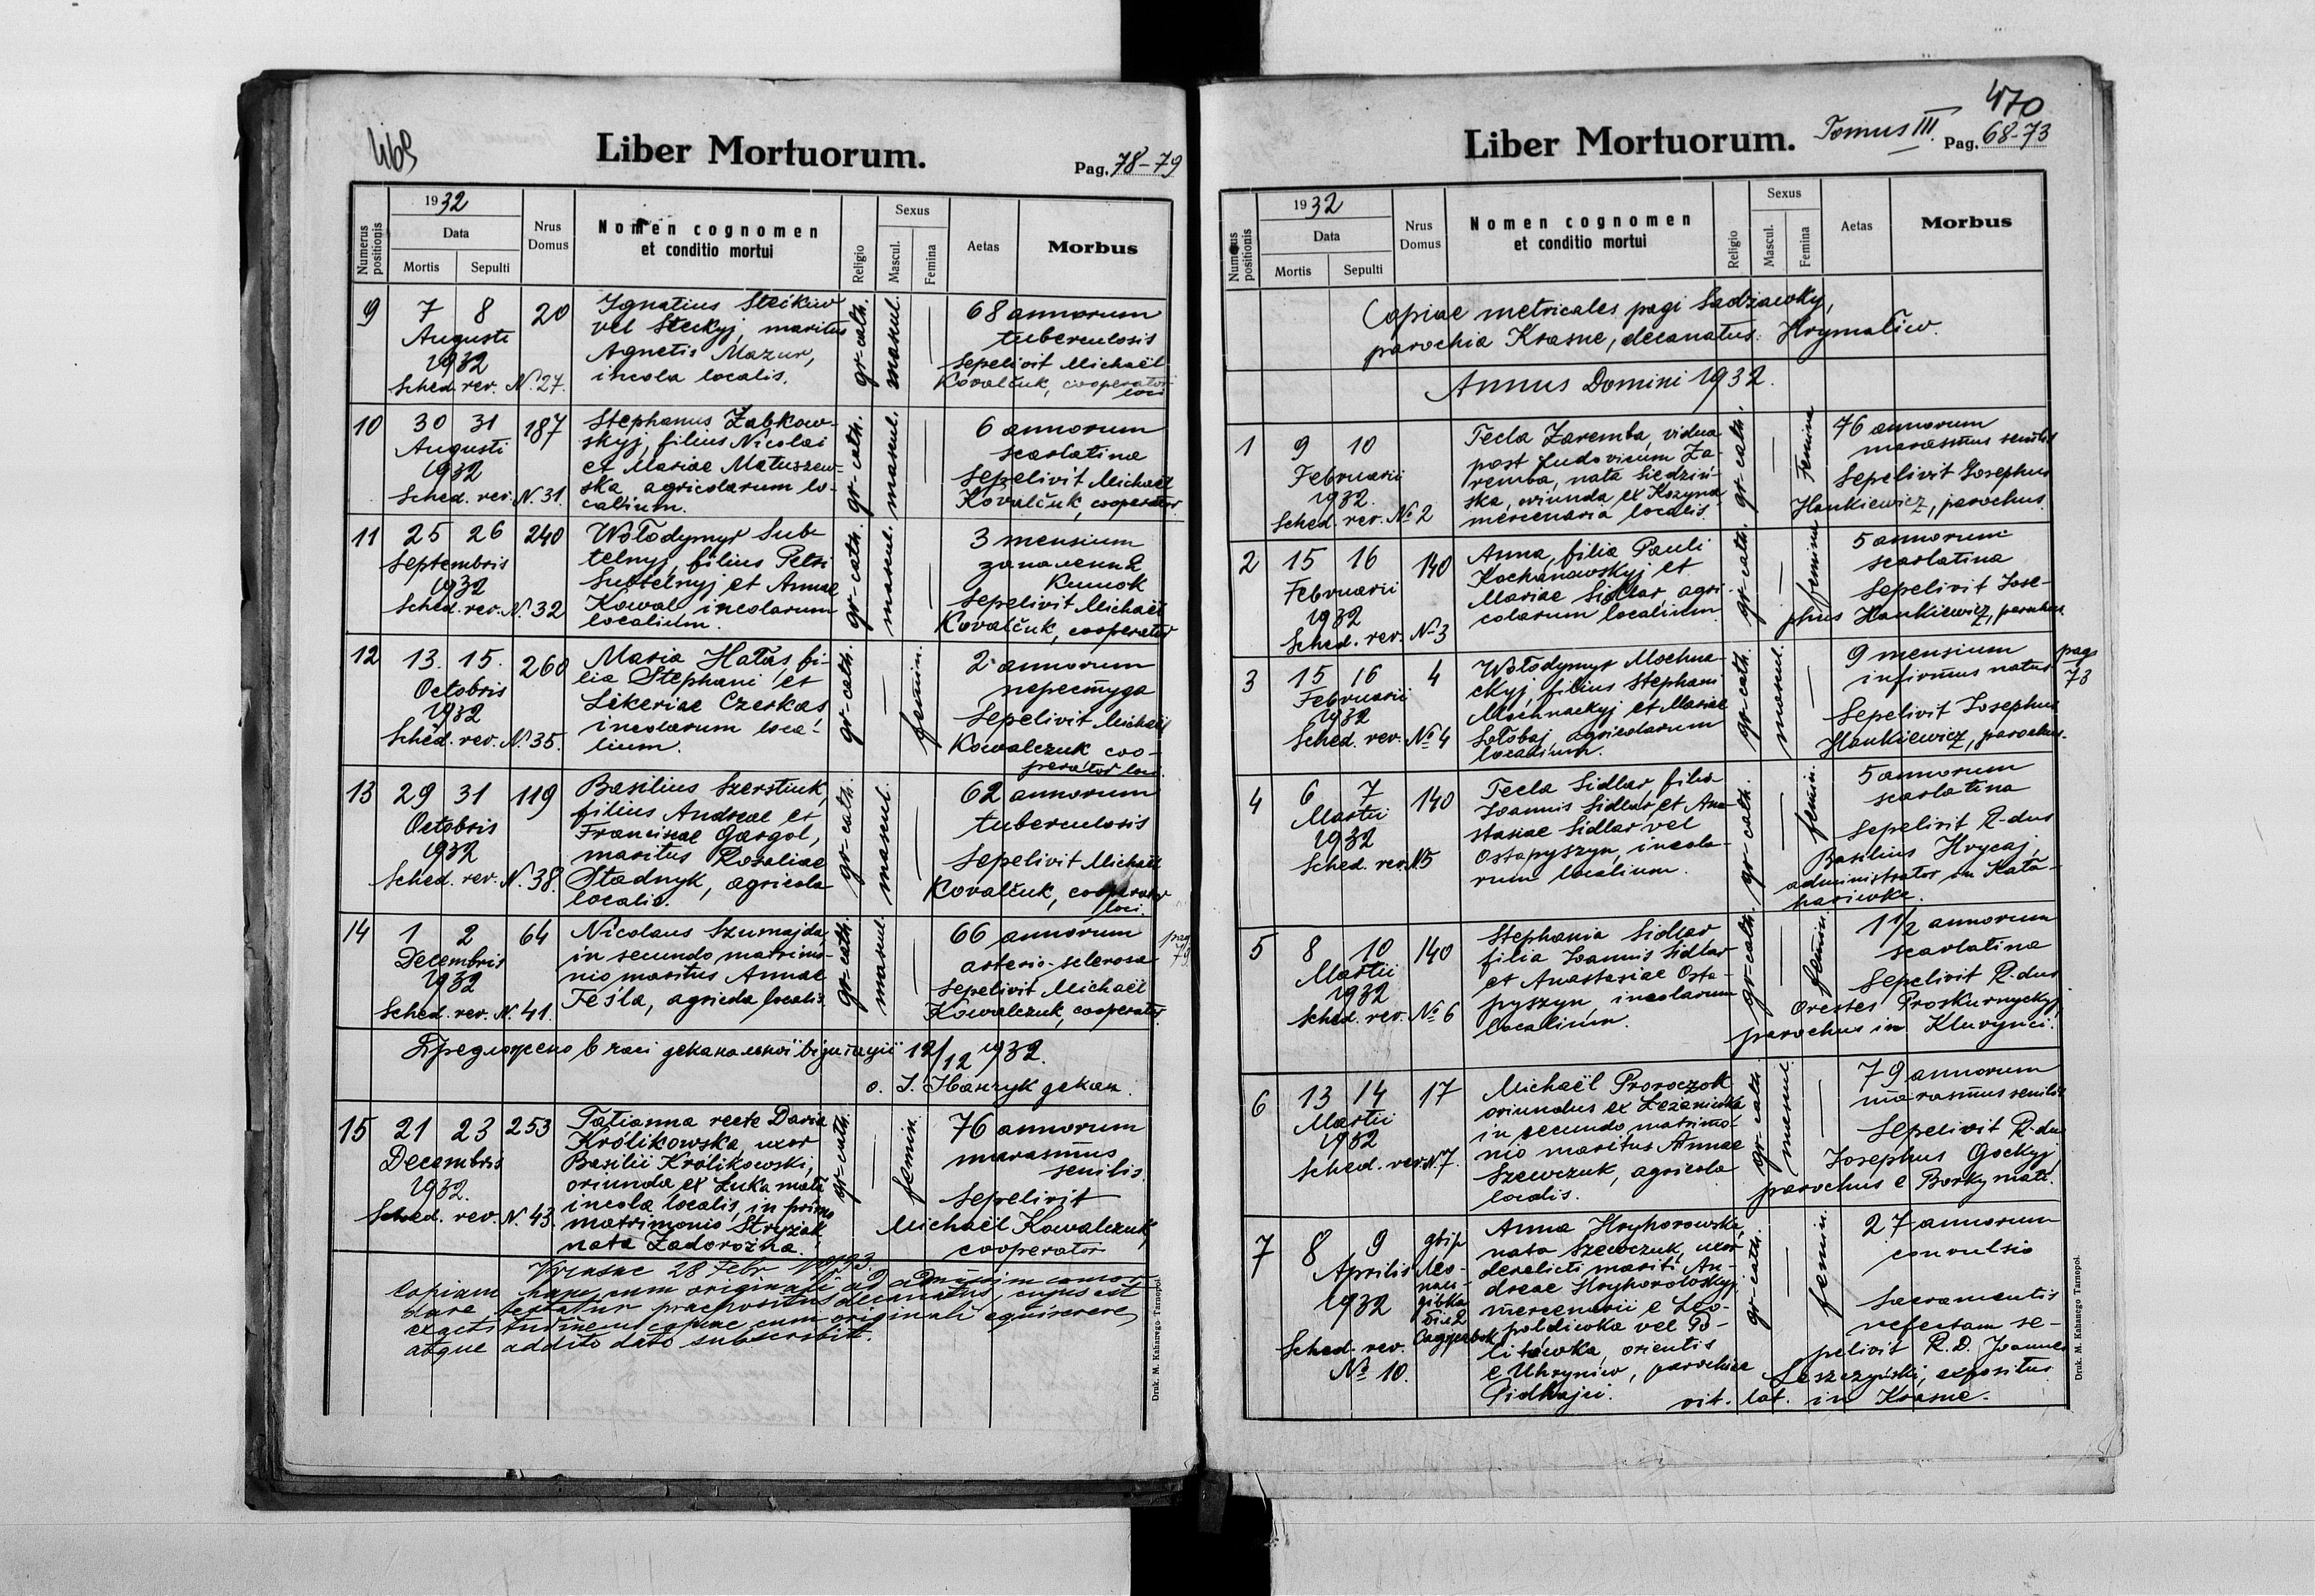 469
Liber Mortuorum.
Pag. 78-79
Numerus positionis
1932
Data
Mortis
Sepulti
Nrus Domus
Nomen cognomen
et conditio mortui
Religio
Sexus
Mascul.
Femina
Aetas
Morbus
9
7 8
Augusti
1932
Sched. rev. N. 27.
20
Ignatius Steckiw
vel Steckyj, maritus
Agnetis Mazur,
incola localis.
gr-cath.
mascul.
68 annorum
tuberculosis
Sepelivit Michaël
Kovalčuk, cooperator
loci
10
30 31
Augusti
1932
Sched. rev. N. 31.
187
Stephanus Zabkow-
skyj, filius Nicolai
et Mariae Matuszew-
ska agricolarum lo-
calium.
gr-cath.
mascul.
6 annorum
scarlatina
Sepelivit Michaël
Kovalčuk, cooperator
11
25 26
Septembris
1932
Sched. rev. N. 32
240
Wołodymyr Sub-
telnyj, filius Petri
Subtelnyj et Annae
Kowal, incolarum
localium.
gr-cath.
mascul.
3 mensium
запалення
кишок
Sepelivit Michaël
Kovalčuk, cooperator
12
13. 15.
Octobris
1932
Sched. rev. N. 35.
260
Maria Hałas, fi-
lia Stephani et
Likeriae Czerkas
incolarum loca-
lium.
gr-cath.
femin.
2 annorum
перестуда
Sepelivit Michaël
Kowalczuk coo-
perator loci.
13
29 31
Octobris
1932
Sched. rev. N. 38.
119
Basilius Szerstiuk,
filius Andreae et
Franciscae Gargol,
maritus Rosaliae
Stadnyk, agricola
localis.
gr-cath.
mascul.
62 annorum
tuberculosis
Sepelivit Michaël
Kovalčuk, cooperator
loci.
14
1 2
Decembris
1932
Sched. rev. N. 41.
64
Nicolaus Szumajda,
in secundo matrimo-
nio maritus Annae
Teśla, agricola localis.
gr-cath.
mascul.
66 annorum
asterio-sclerosa
Sepelivit Michaël
Kowalczuk, cooperator.
pag
79
Предложено в часі деканальної візитації 12/12 1932.
о. І. декан.
15
21 23
Decembris
1932.
Sched. rev. N. 43.
253
Tatianna recte Daria
Królikowska, uxor
Basilii Królikowski,
oriunda ex Łuka mała
incola localis, in primo
matrimonio Stryżak,
nata Zadorożna.
gr-cath.
femin.
76 annorum
marasmus
senilis
Sepelivit
Michaël Kowalczuk,
cooperator
Krasne 28 Febr 1933.
Copiam hanc cum originali ad concor-
dare testatur praepositus decanatus, cujus est
exactitudinem copiae cum originali
atque addito dato subscribit.
Druk. M. Kahanego Tarnopol.
470
Liber Mortuorum.
Tomus III.
Pag. 68-73
Numerus positionis
1932
Data
Mortis
Sepulti
Nrus Domus
Nomen cognomen
et conditio mortui
Religio
Sexus
Mascul.
Femina
Aetas
Morbus
Copiae metricales pagi Sadżawky,
parochia Krasne, decanatus: Hrymałiw.
Annus Domini 1932.
1
9 10
Februarii
1932.
Sched. rev. № 2
Tecla Zaremba, vidua
post Ludovicum Za-
remba, nata Siedziń-
ska, oriunda ex Kozyna
mercenaria localis.
gr-cath.
Femina
76 annorum
marasmus senilis
Sepelivit Josephus
Hankiewicz, parochus.
2
15 16
Februarii
1932
Sched. rev. № 3
140
Anna, filia Pauli
Kochanowskyj et
Mariae Sidlar, agri-
colarum localium.
gr-cath.
femina
5 annorum
scarlatina
Sepelivit Jose-
phus Hankiewicz, parochus
3
15 16
Februarii
1932
Sched. rev. № 4
4
Wołodymyr Mochna-
ckyj, filius Stephani
Mochnackyj et Mariae
Sołobaj, agricolarum
localium.
gr-cath.
mascul.
9 mensium
infirmus natus
Sepelivit Josephus
Hankiewicz, parochus.
pag
73
4
6 7
Martii
1932
Sched. rev. N. 5
140
Tecla Sidlar, filia
Joannis Sidlar et Ana-
stasiae Sidlar vel
Ostapyszyn, incola-
rum localium.
gr-cath.
femin.
5 annorum
scarlatina
Sepelivit R-dus
Basilius Hrycaj,
administrator in Kata-
hariwka.
5
8 10
Martii
1932
Sched. rev. № 6
140
Stephania Sidlar
filia Joannis Sidlar
et Anastasiae Osta-
pyszyn, incolarum
localium.
gr-cath.
femin.
1 1/2 annorum
scarlatina
Sepelivit R-dus
Orestes Proskurnyckyj,
parochus in Kluvynci.
6
13 14
Martii
1932
Sched. rev. N. 7.
17
Michaël Proroczok
oriundus ex Łezaniwka
in secundo matrimo-
nio maritus Annae
Szewczuk, agricola
localis.
gr-cath.
mascul.
79 annorum
marasmus senilis
Sepelivit R-dus
Josephus Gockyj,
parochus e Borky mali.
7
8 9
Aprilis
1932
Sched. rev.
№ 10.
двір
Лео-
пол-
дівка
біля
Саджавок
Anna Hryhorowska,
nata Szewczuk, uxor
derelicti mariti An-
dreae Hryhorowskyj
mercenarii e Leo-
poldiwka vel Po-
litawka, orientis
e Uhryniw, parochiae
Pidhajci.
gr-cath.
femin.
27 annorum
convulsio
Sacramentis
refectam se-
pelivit R. D. Joannes
Leszczyński, expositus
rit. lat. in Krasne.
Druk. M. Kahanego Tarnopol.